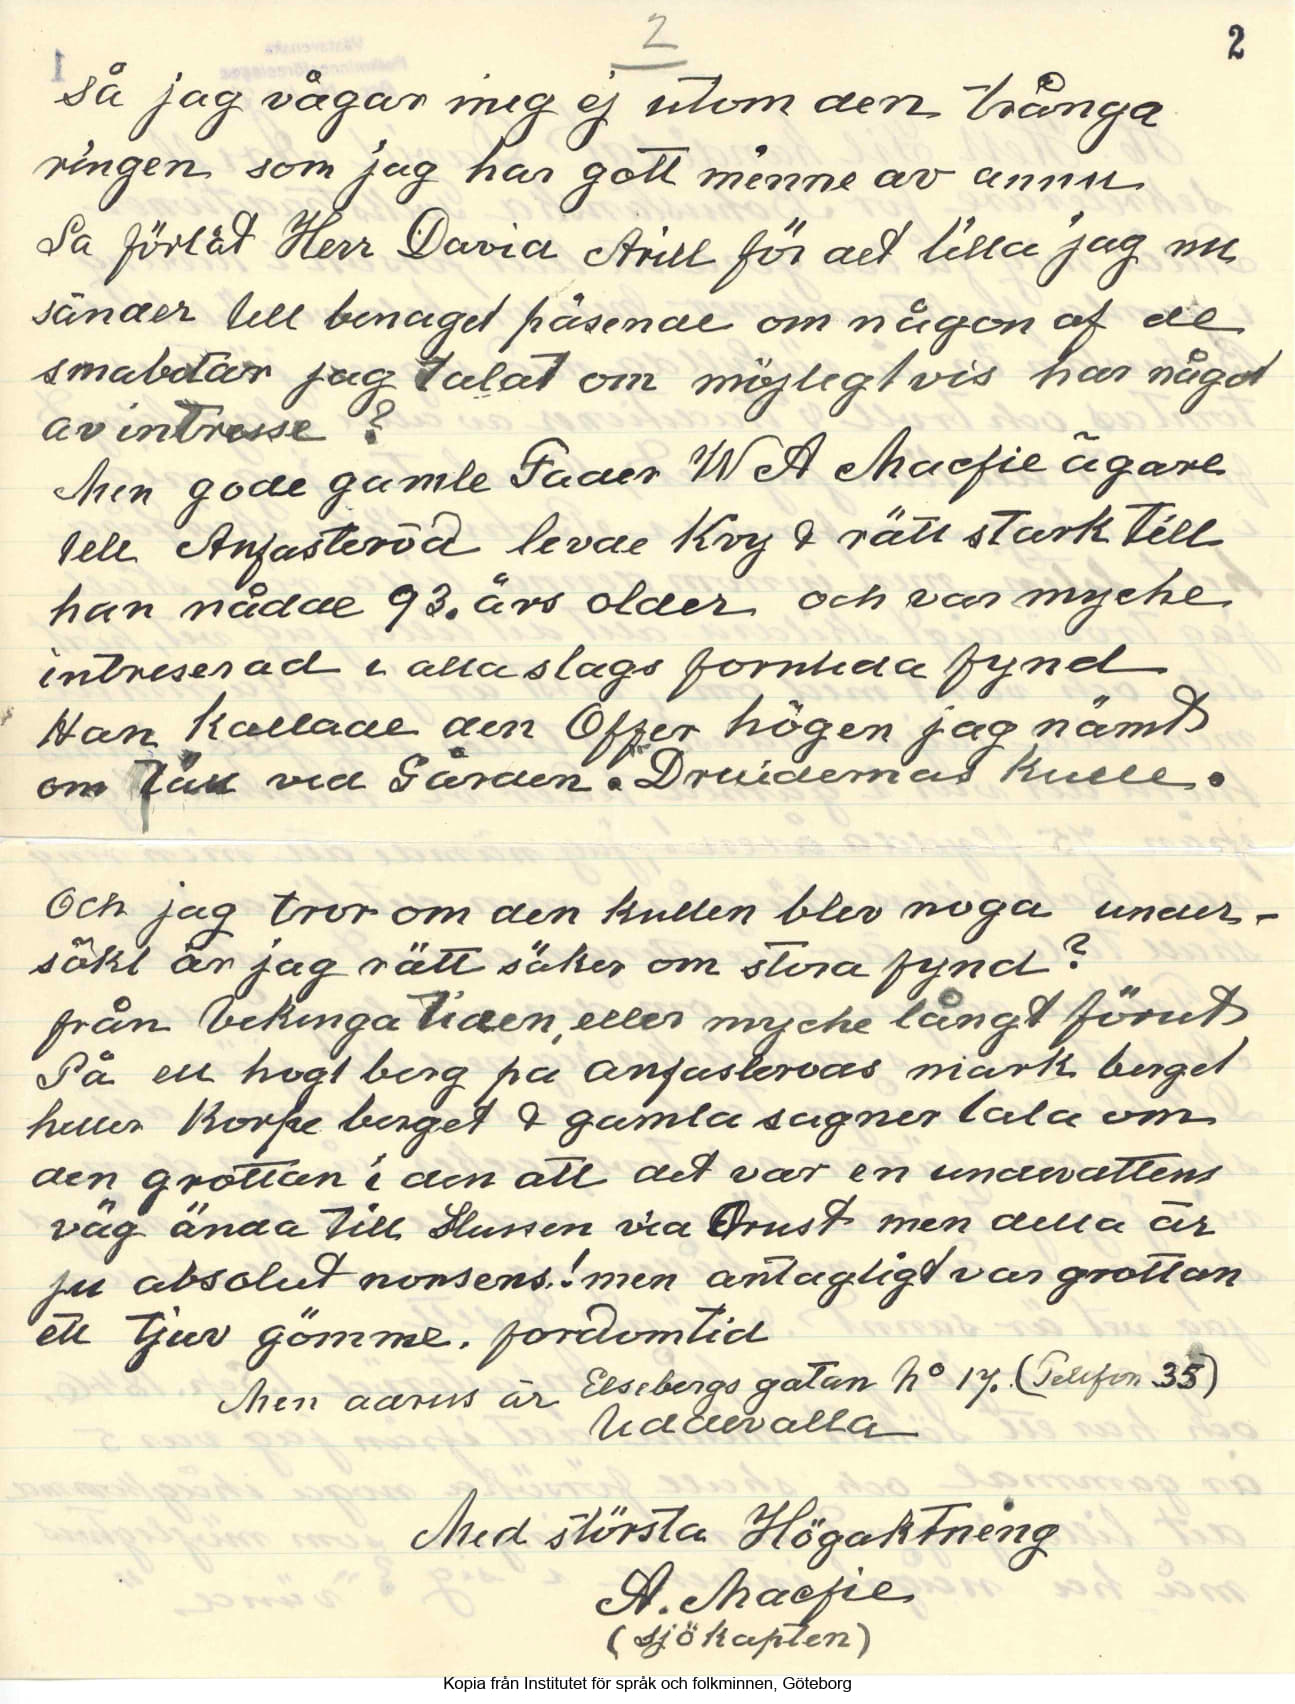 2
2
så jag vågar mig ej utom den trånga
ringen som jag har gott minne av annu
Sa förlåt Herr David Arill för det lilla jag nu
sänder till benaget påseende om någon af de
smabitar jag talat om möjligtvis har något
av intresse?
Men gode gamle Fader W A Macfie ägare
till Anfasteröd levde Kry & rätt stark till
han nådde 93. års older och var myche
intreserad i alla slags forntida fynd
Han Kallade den Offer högen jag nämt
om tätt vid Gården. Druidernas Kulle.
Och jag tror om den kullen blev noga under-
sökt är jag rätt säker om stora fynd?
från Vikinga Tiden, eller myche långt förut
På ett hogt berg pa anfasterods mark berget
heller Korpe berget & gamla sagner tala om
den grottan i den att det var en undervattens
väg ända till Slussen via Orust men detta är
ju absolut nonsens.! men antagligt var grottan
ett tjuv gömme. fordomtid
Men adrus är Elsebergs gatan No 17. (Telifon 35)
Uddevalla
Med största Högaktning
A. Macfie
(sjökapten)
Kopia från Institutet för språk och folkminnen, Göteborg